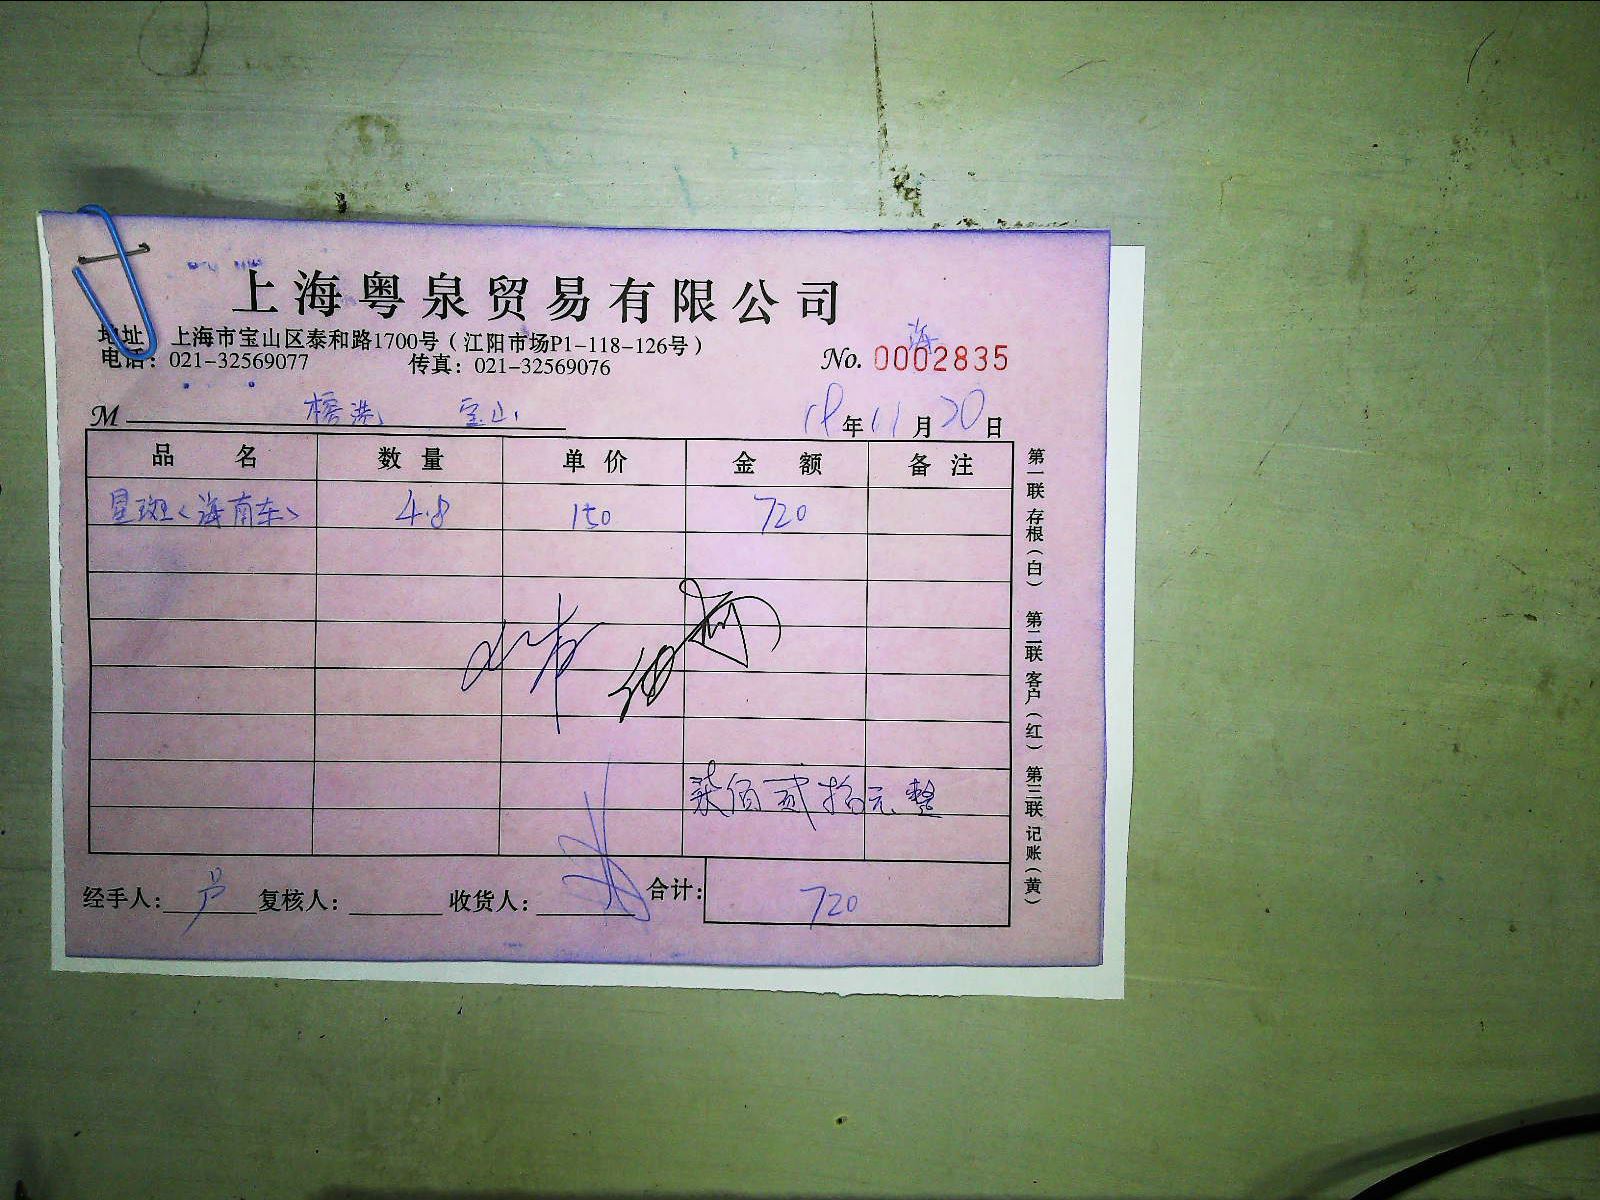 上海粤泉贸易有限公司
地址：上海市宝山区泰和路1700号（江阳市场P1-118-126号）
电话：021-32569077 传真：021-32569076
海
No. 0002835
M 宝山
18年11月20日
品名 数量 单价 金额 备注
星斑<海南车> 4.8 150 720
柒佰贰拾元整
经手人：卢 复核人： 收货人： 合计：720
第一联 存根（白） 第二联 客户（红） 第三联 记账（黄）